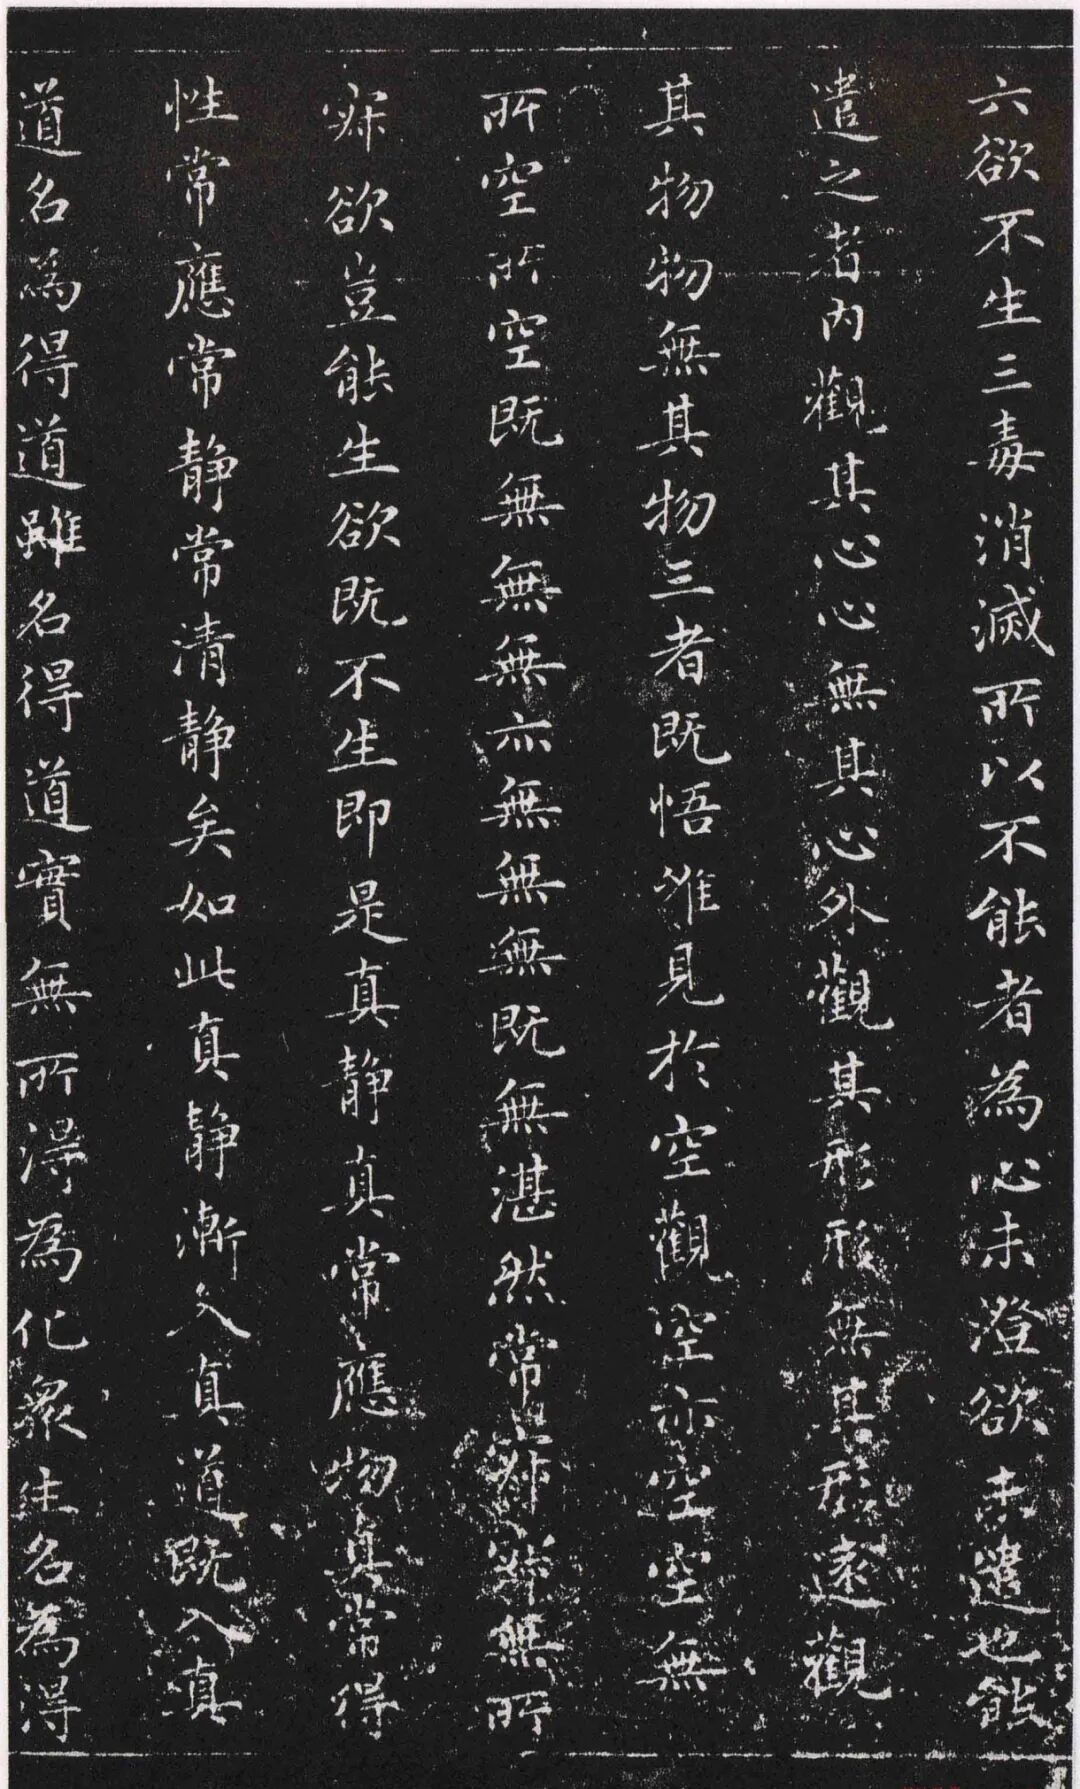 六欲不生三毒消滅所以不能者為心未澄欲未遣也能
遣之者内觀其心心無其心外觀其形形無其形遠觀
其物物無其物三者既悟唯見於空觀空亦空空無
所空所空既無無無亦無無無既無湛然常寂寂無所
寂欲豈能生欲既不生即是真静真常應物真常得
性常應常静常清静矣如此真静漸入真道既入真
道名為得道雖名得道實無所得為化衆生名為得